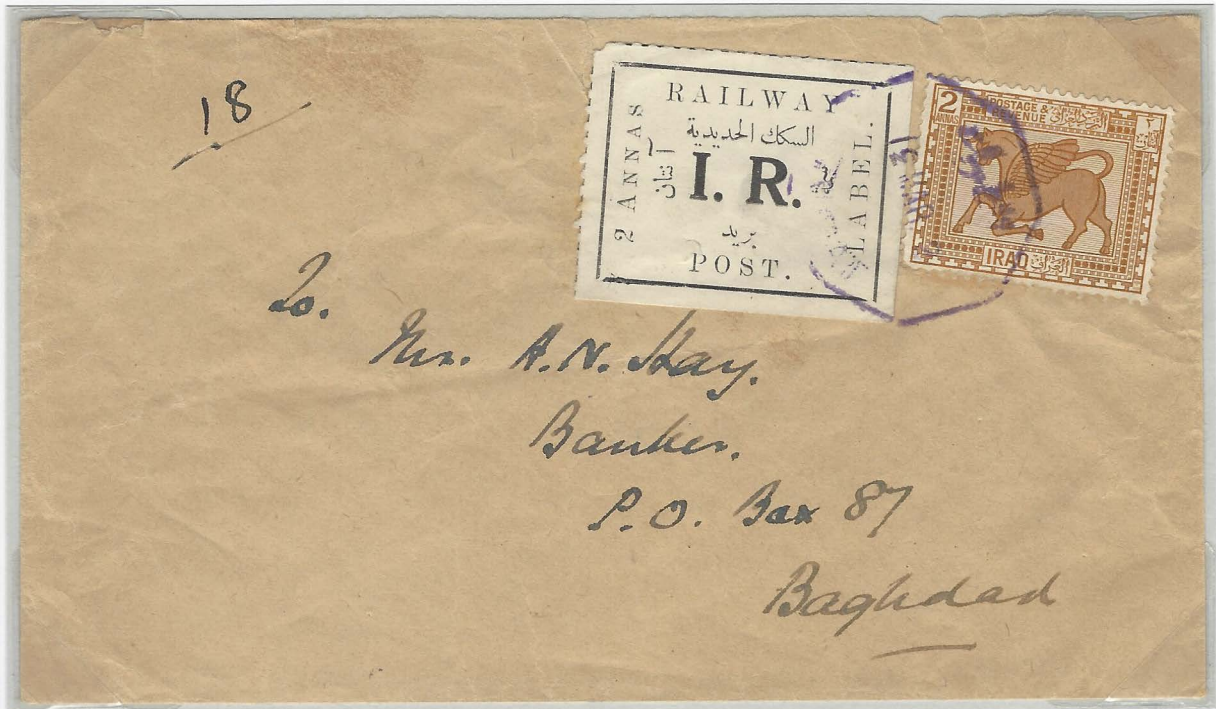 18
RAILWAY
السكك الحديدية
2 ANNAS
آنتان
I. R.
LABEL.
بريد
POST.
2
ANNAS
POSTAGE &
REVENUE
IRAQ
العراق
31
To.
Mr. A.N. Hay.
Banker.
P.O. Box 87
Baghdad